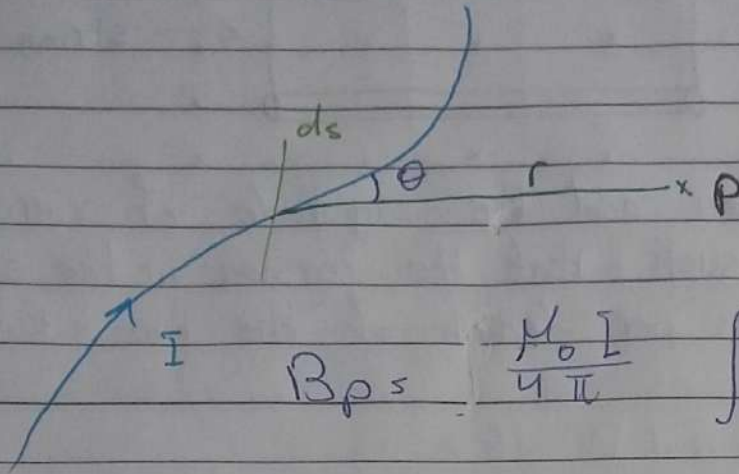 ds
θ
r
× P
I
Bp = μ₀ I / 4 π ∫